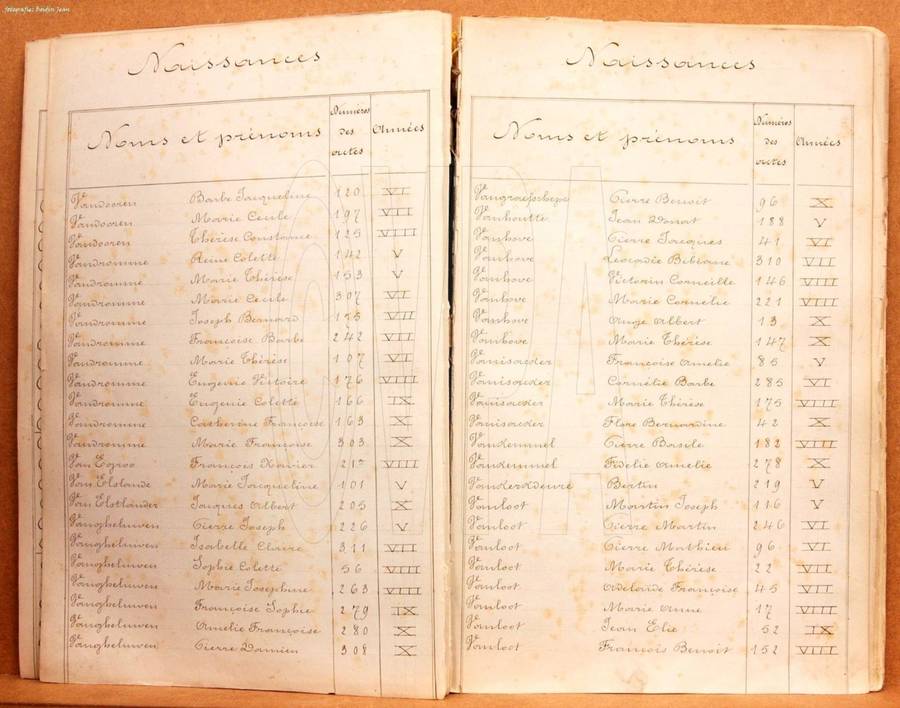 fotografies Boidin Jean
Naissances
Noms et prénoms Numéros des actes Années
Vandooren Barbe Jacqueline 120 VI
Vandooren Marie Cecile 197 VII
Vandooren Thérèse Constance 125 VIII
Vandromme Reine Colette 142 V
Vandromme Marie Thérèse 153 V
Vandromme Marie Cecile 307 VI
Vandromme Joseph Bernard 175 VII
Vandromme Françoise Barbe 242 VII
Vandromme Marie Thérèse 107 VI
Vandromme Eugenie Victoire 176 VIII
Vandromme Eugenie Colette 166 IX
Vandromme Catherine Françoise 163 X
Vandromme Marie Françoise 303 X
Van Eegroo François Xavier VIII
Van Elslande Marie Jacqueline 101 V
Van Elstlander Jacques Albert 205 X
Vangheluwen Pierre Joseph 226 V
Vangheluwen Isabelle Claire 311 VII
Vangheluwen Sophie Colette 56 VIII
Vangheluwen Marie Josephine 263 VIII
Vangheluwen Françoise Sophie 279 IX
Vangheluwen Amelie Françoise 280 X
Vangheluwen Pierre Damien 308 X
Naissances
Noms et prénoms Numéros des actes Années
Pierre Benoit 96 X
Vanhoutte Jean Donat 188 V
Vanhove Pierre Jacques 41 VI
Vanhove Leocadie Bibiane 310 VII
Vanhove Victorin Corneille 146 VIII
Vanhove Marie Cornelie 221 VIII
Vanhove Ange Albert 13 X
Vanhove Marie Thérèse 147 X
Vanisacker Françoise Amelie 85 V
Vanisacker Cornélie Barbe 285 VI
Vanisacker Marie Thérèse 175 VIII
Vanisacker Flore Bernardine 42 X
Vankemmel Pierre Basile 182 VIII
Vankemmel Fidelie Amelie 278 X
Vankerkdeure Bertin 219 V
Vanloot Martin Joseph 116 V
Vanloot Pierre Martin 246 VI
Vanloot Pierre Mathieu 96 VI
Vanloot Marie Thérèse 22 VII
Vanloot Adelaide Françoise 45 VII
Vanloot Marie Anne 17 VIII
Vanloot Jean Elie 52 IX
Vanloot François Benoit 152 VIII